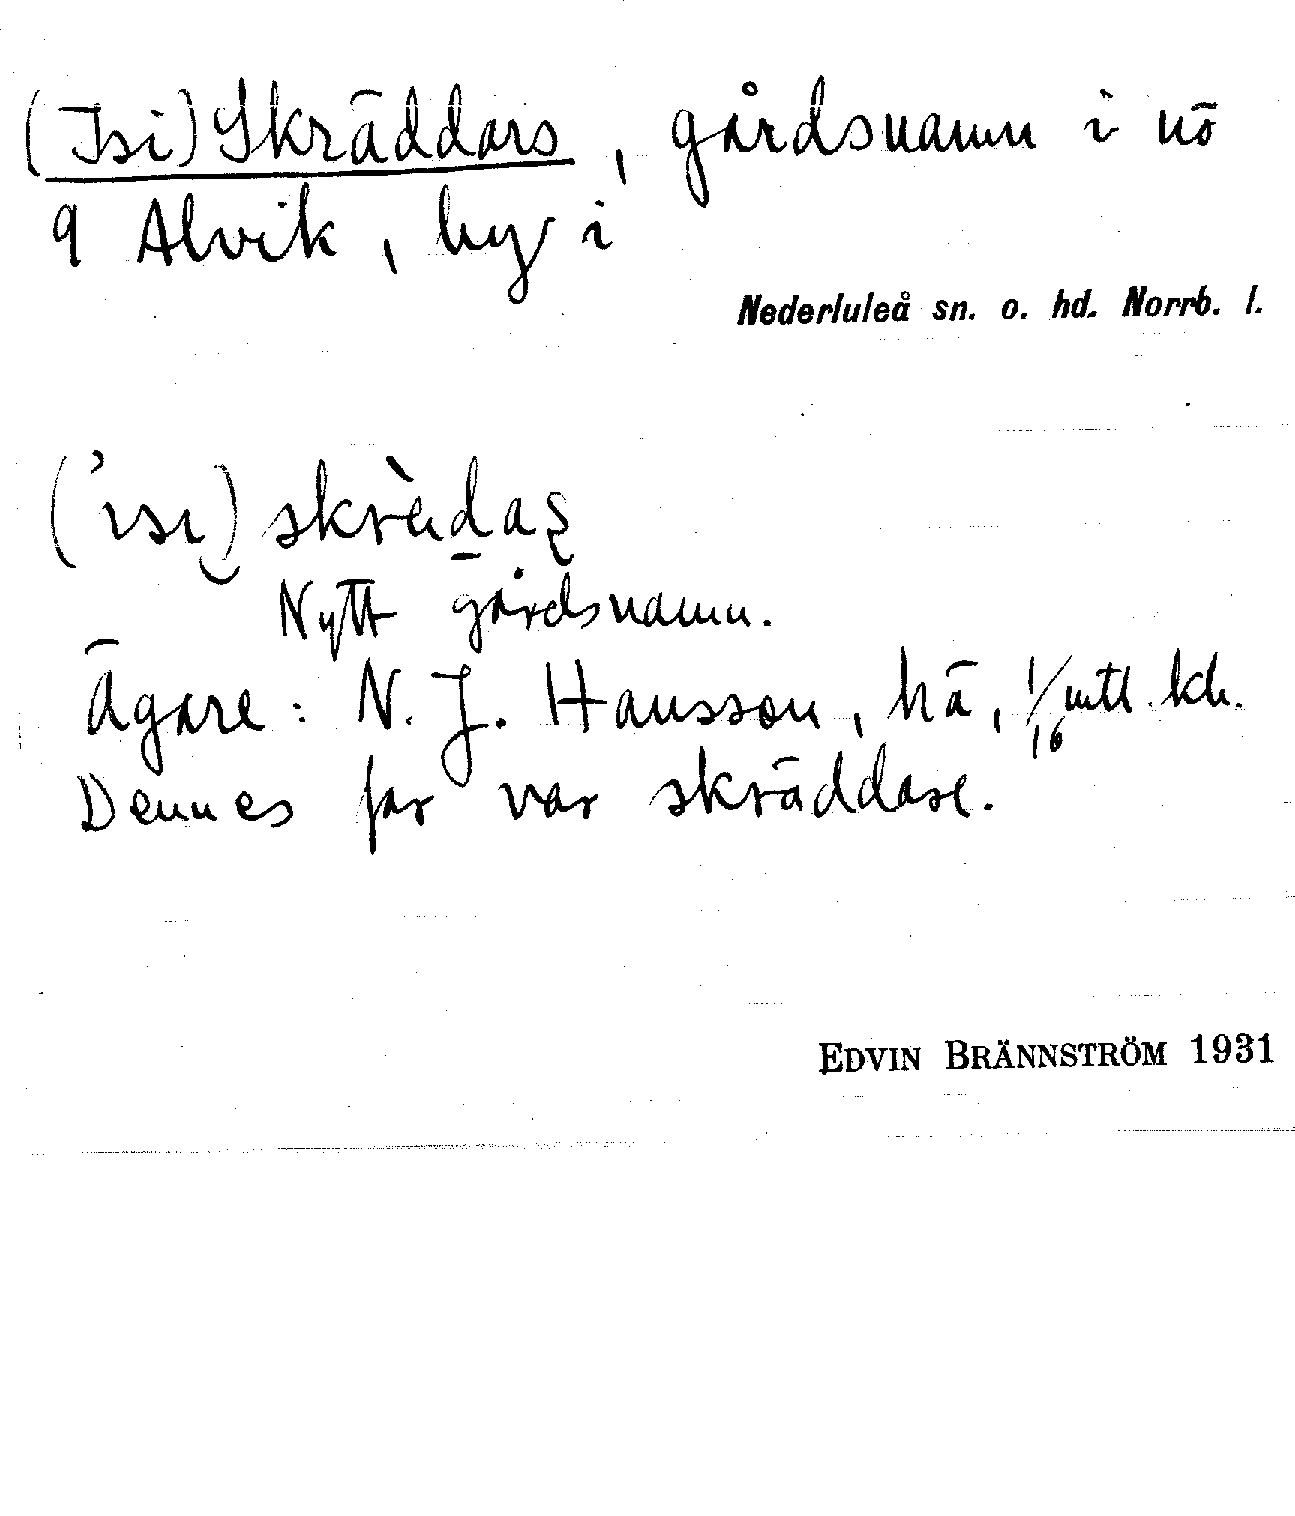 (Isi) Skräddars, gårdsnamn i nö
9 Alvik, by i
Nederluleå sn. o. hd. Norrb. l.
Nytt gårdsnamn.
Ägare: N. J. Hansson, hä, 1/16 mtl kr.
Dennes far var skräddare.
EDVIN BRÄNNSTRÖM 1931